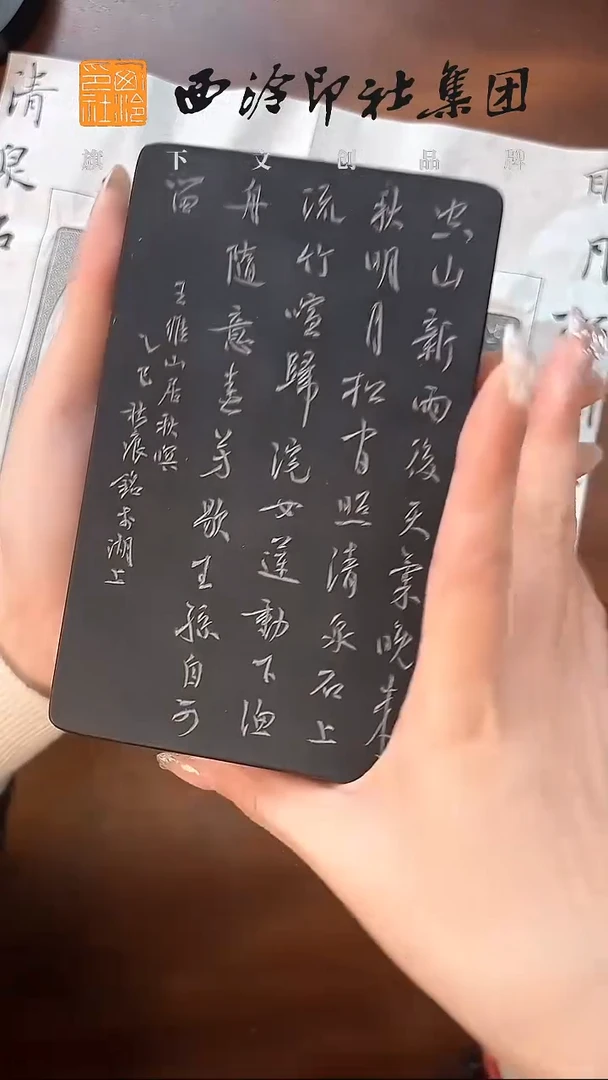 西泠印社
西泠印社集团
旗下文创品牌
空山新雨後天氣晚来
秋明月松间照清泉石上
流竹喧歸浣女蓮動下渔
舟隨意春芳歇王孫自可
留
王維山居秋暝
乙巳
銘於湖上
清泉石
明月